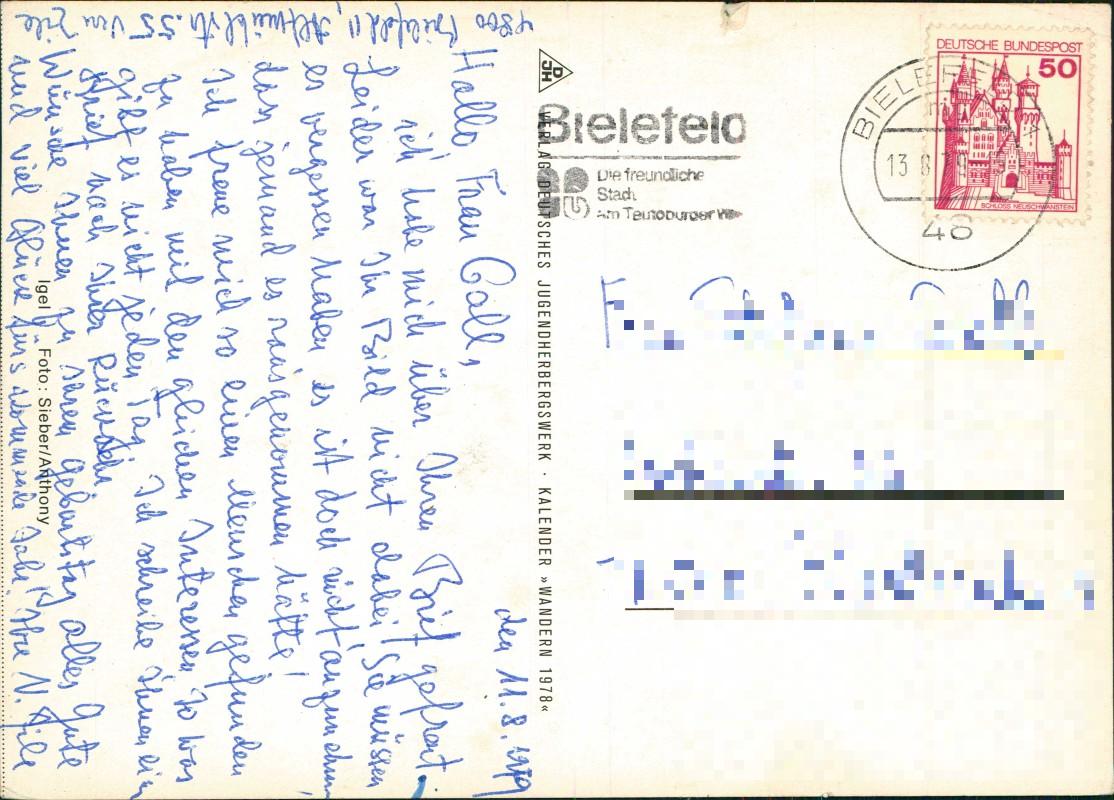 den 11.8.1979
Hallo Frau Gall,
ich habe mich über Ihren Brief gefreut.
Leider war Ihr Bild nicht dabei! Sie müssen
es vergessen haben, es ist doch nicht anzunehmen
dass jemand es rausgenommen hätte!
Ich freue mich so einen Menschen gefunden
zu haben mit den gleichen Interessen. So was
gibt es nicht jeden Tag. Ich schreibe Ihnen ein
Brief nach Ihrer Rückkehr
Wünsche Ihnen zu Ihrem Geburtstag alles Gute
und viel Glück fürs kommende Jahr! Ihre N.
4800 Bielefeld 11, 55
Igel Foto: Sieber/Anthony
DJH
VERLAG DEUTSCHES JUGENDHERBERGSWERK · KALENDER »WANDERN 1978«
Bielefeld
Die freundliche
Stadt
am Teutoburger Wald
BIELEFELD
13.8.79
48
DEUTSCHE BUNDESPOST
50
SCHLOSS NEUSCHWANSTEIN